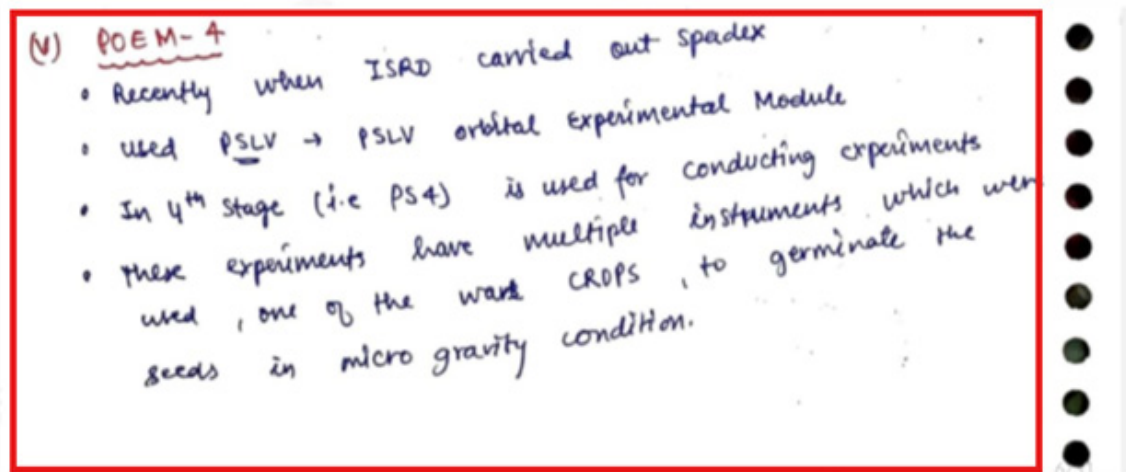 (V) POEM-4
• Recently when ISRO carried out spadex
• used PSLV → PSLV orbital Experimental Module
• In 4th stage (i.e PS4) is used for conducting experiments
• These experiments have multiple instruments which wer
used, one of the wark CROPS, to germinate the
seeds in micro gravity condition.